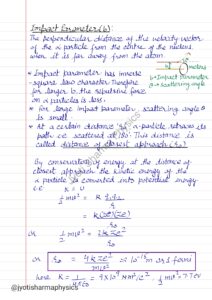 Impact Parameter (b)
The perpendicular distance of the velocity vector
of the α particle from the centre of the nucleus
when it is far away from the atom
* Impact parameter has inverse
square law character. Therefore
for larger b the repulsive force
on α particles is less.
b = Impact parameter
θ = scattering angle
* For large impact parameter, scattering angle θ
is small
* At a certain distance 'r₀' α-particle retraces its
path i.e. scattered at 180°. This distance is
called distance of closest approach (r₀)
By conservation of energy at the distance of
closest approach the kinetic energy of the
α particle is converted into potential energy
i.e. K = U
½mv² = K q₁q₂
r₀
= K(2e)(ze)
r₀
or ½mv² = 2kze²
r₀
or r₀ = 4kze²
mv²
≈ 10⁻¹⁵m or 1 fermi
here K = 1 = 9×10⁹ Nm²/c²
4πε₀
@jyotisharmaphysics